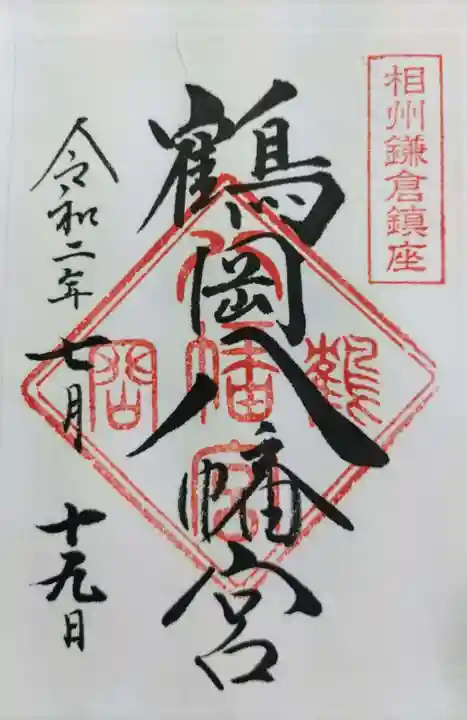 相州鎌倉鎮座
鶴岡八幡宮
鶴
八幡宮
岡
令和二年七月十九日